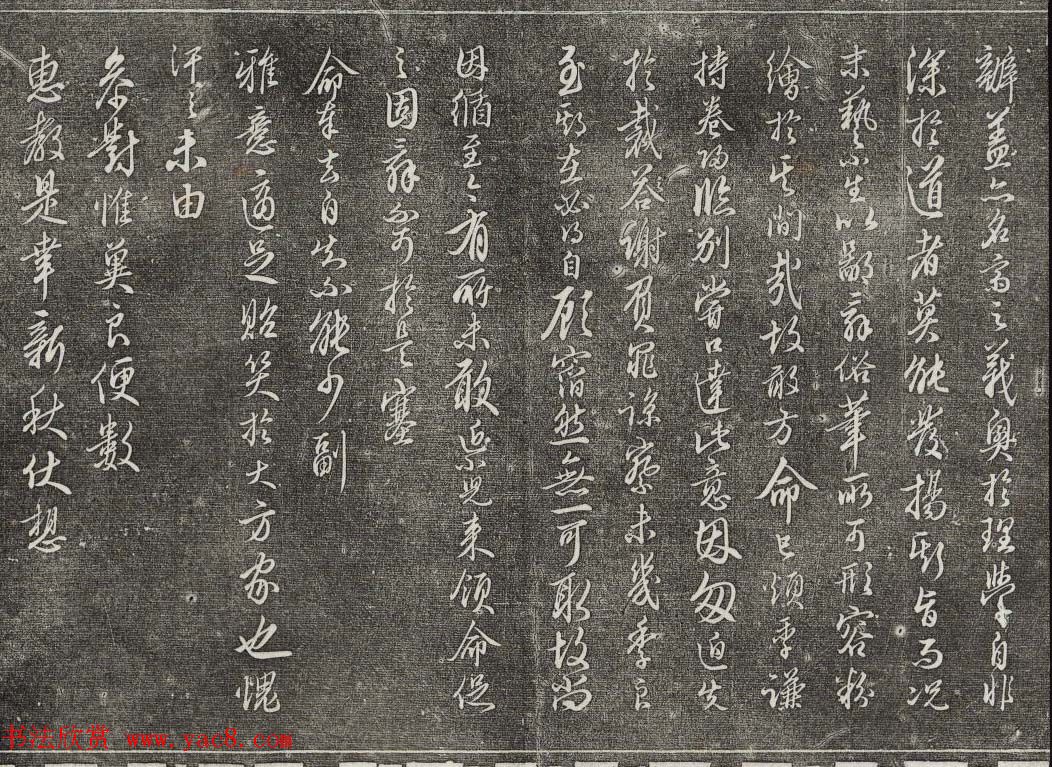 辭蓋亦名言之義奧於理學自非
深於道者莫能發揚斯旨而況
末藝小生以鄙辭俗筆所可形容粉
繪於其間哉故敢方命已煩季謙
持卷歸臨別嘗口達此意因匆迫失
於裁答謝負罪諒察未幾季良
至斯在必

自顧窘然無一可取故尚
因循至今有所未敢近小兒來領命促
之固辭不可於是塞
命奉去自知不能少副
雅意適足貽笑於大方家也愧
汗之未由
參對惟冀良便數
惠教是幸新秋伏想
书法欣赏 www.yac8.com